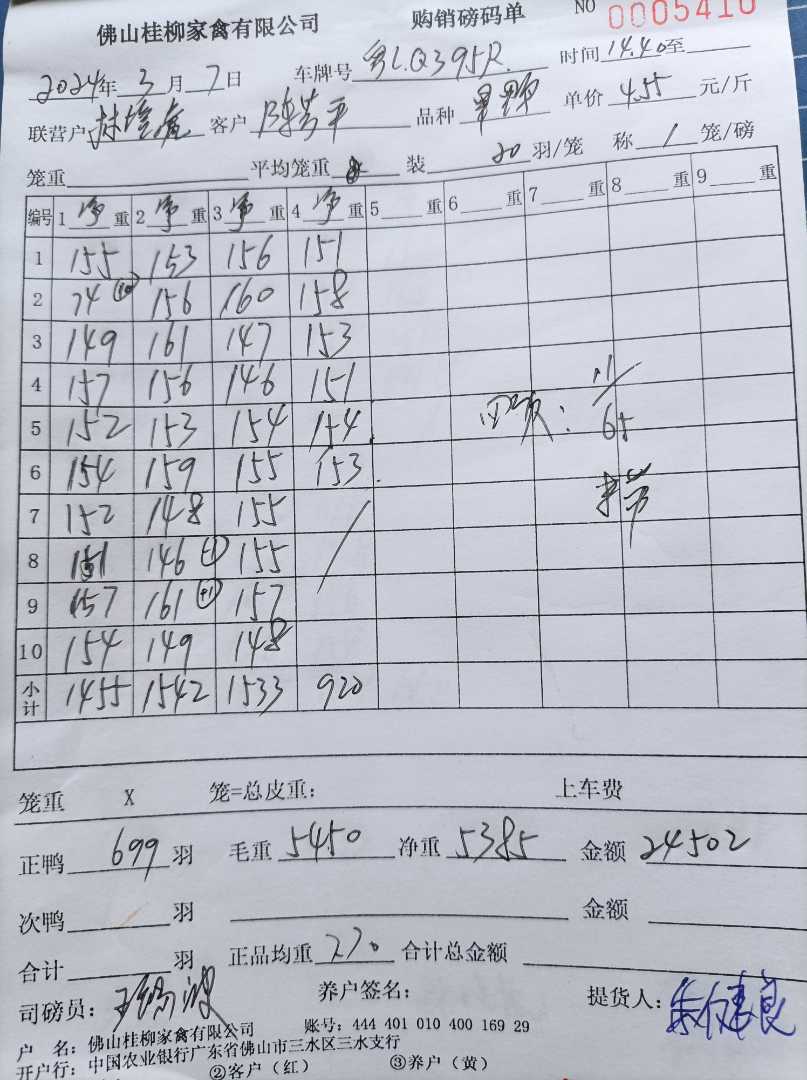 佛山桂柳家禽有限公司 购销磅码单 NO 0005410
2024年 3 月 7 日 车牌号 粤L.Q395R. 时间 14.40 至
联营户 客户 陈芳平 品种 单价 4.55 元/斤
笼重 平均笼重 装 20 羽/笼 称 1 笼/磅
编号 1 净 重 2 净 重 3 净 重 4 净 重 5 重 6 重 7 重 8 重 9 重
1 155 153 156 151
2 74 (10) 156 160 158
3 149 161 147 153
4 157 156 146 151
5 152 153 154 154
6 154 159 155 153
7 152 148 155
8 151 146 155
9 157 161 (+1) 157
10 154 149 148
小计 1455 1542 1533 920
65
笼重 X 笼=总皮重： 上车费
正鸭 699 羽 毛重 5450 净重 5385 金额 24502
次鸭 羽 金额
合计 羽 正品均重 770 合计总金额
司磅员： 养户签名： 提货人：朱健良
户 名：佛山桂柳家禽有限公司 账号：444 401 010 400 169 29
开户行：中国农业银行广东省佛山市三水区三水支行
②客户（红） ③养户（黄）